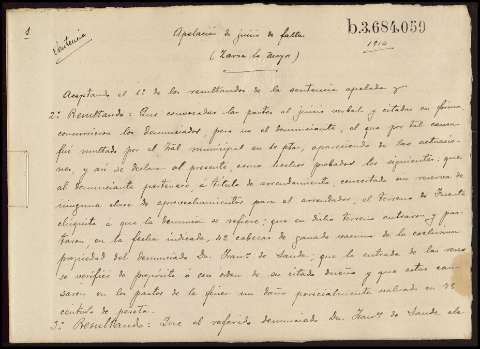 1
Sentencia
Apelación de juicio de faltas
b.3.684.059
1910
(Zarza la Mayor)
Aceptando el 1º de los resultandos de la sentencia apelada y
2º Resultando: Que convocadas las partes al juicio verbal y citadas en forma
concurrieron los denunciados, pero no el denunciante, el que por tal causa
fué multado por el Tral municipal en 10 ptas, apareciendo de las actuacio-
nes, y así se declara al presente, como hechos probados los siguientes; que
al denunciante pertenecía, á titulo de arrendamiento, concertado sin reserva de
ninguna clase de aprovechamientos para el arrendador, el terreno de Fuente
á que la denuncia se refiere; que en dicho terreno entraron y pas-
taron, en la fecha indicada, 42 cabezas de ganado vacuno de la exclusiva
propiedad del denunciado Dn. Franco. de Sande; que la entrada de las reses
se verificó de propósito ó con orden de su citado dueño y que estas cau-
saron en los pastos de la finca un daño pericialmente valuado en 75
centimos de peseta.
3º Resultando: Que el referido denunciado Dn Franco. de Sande